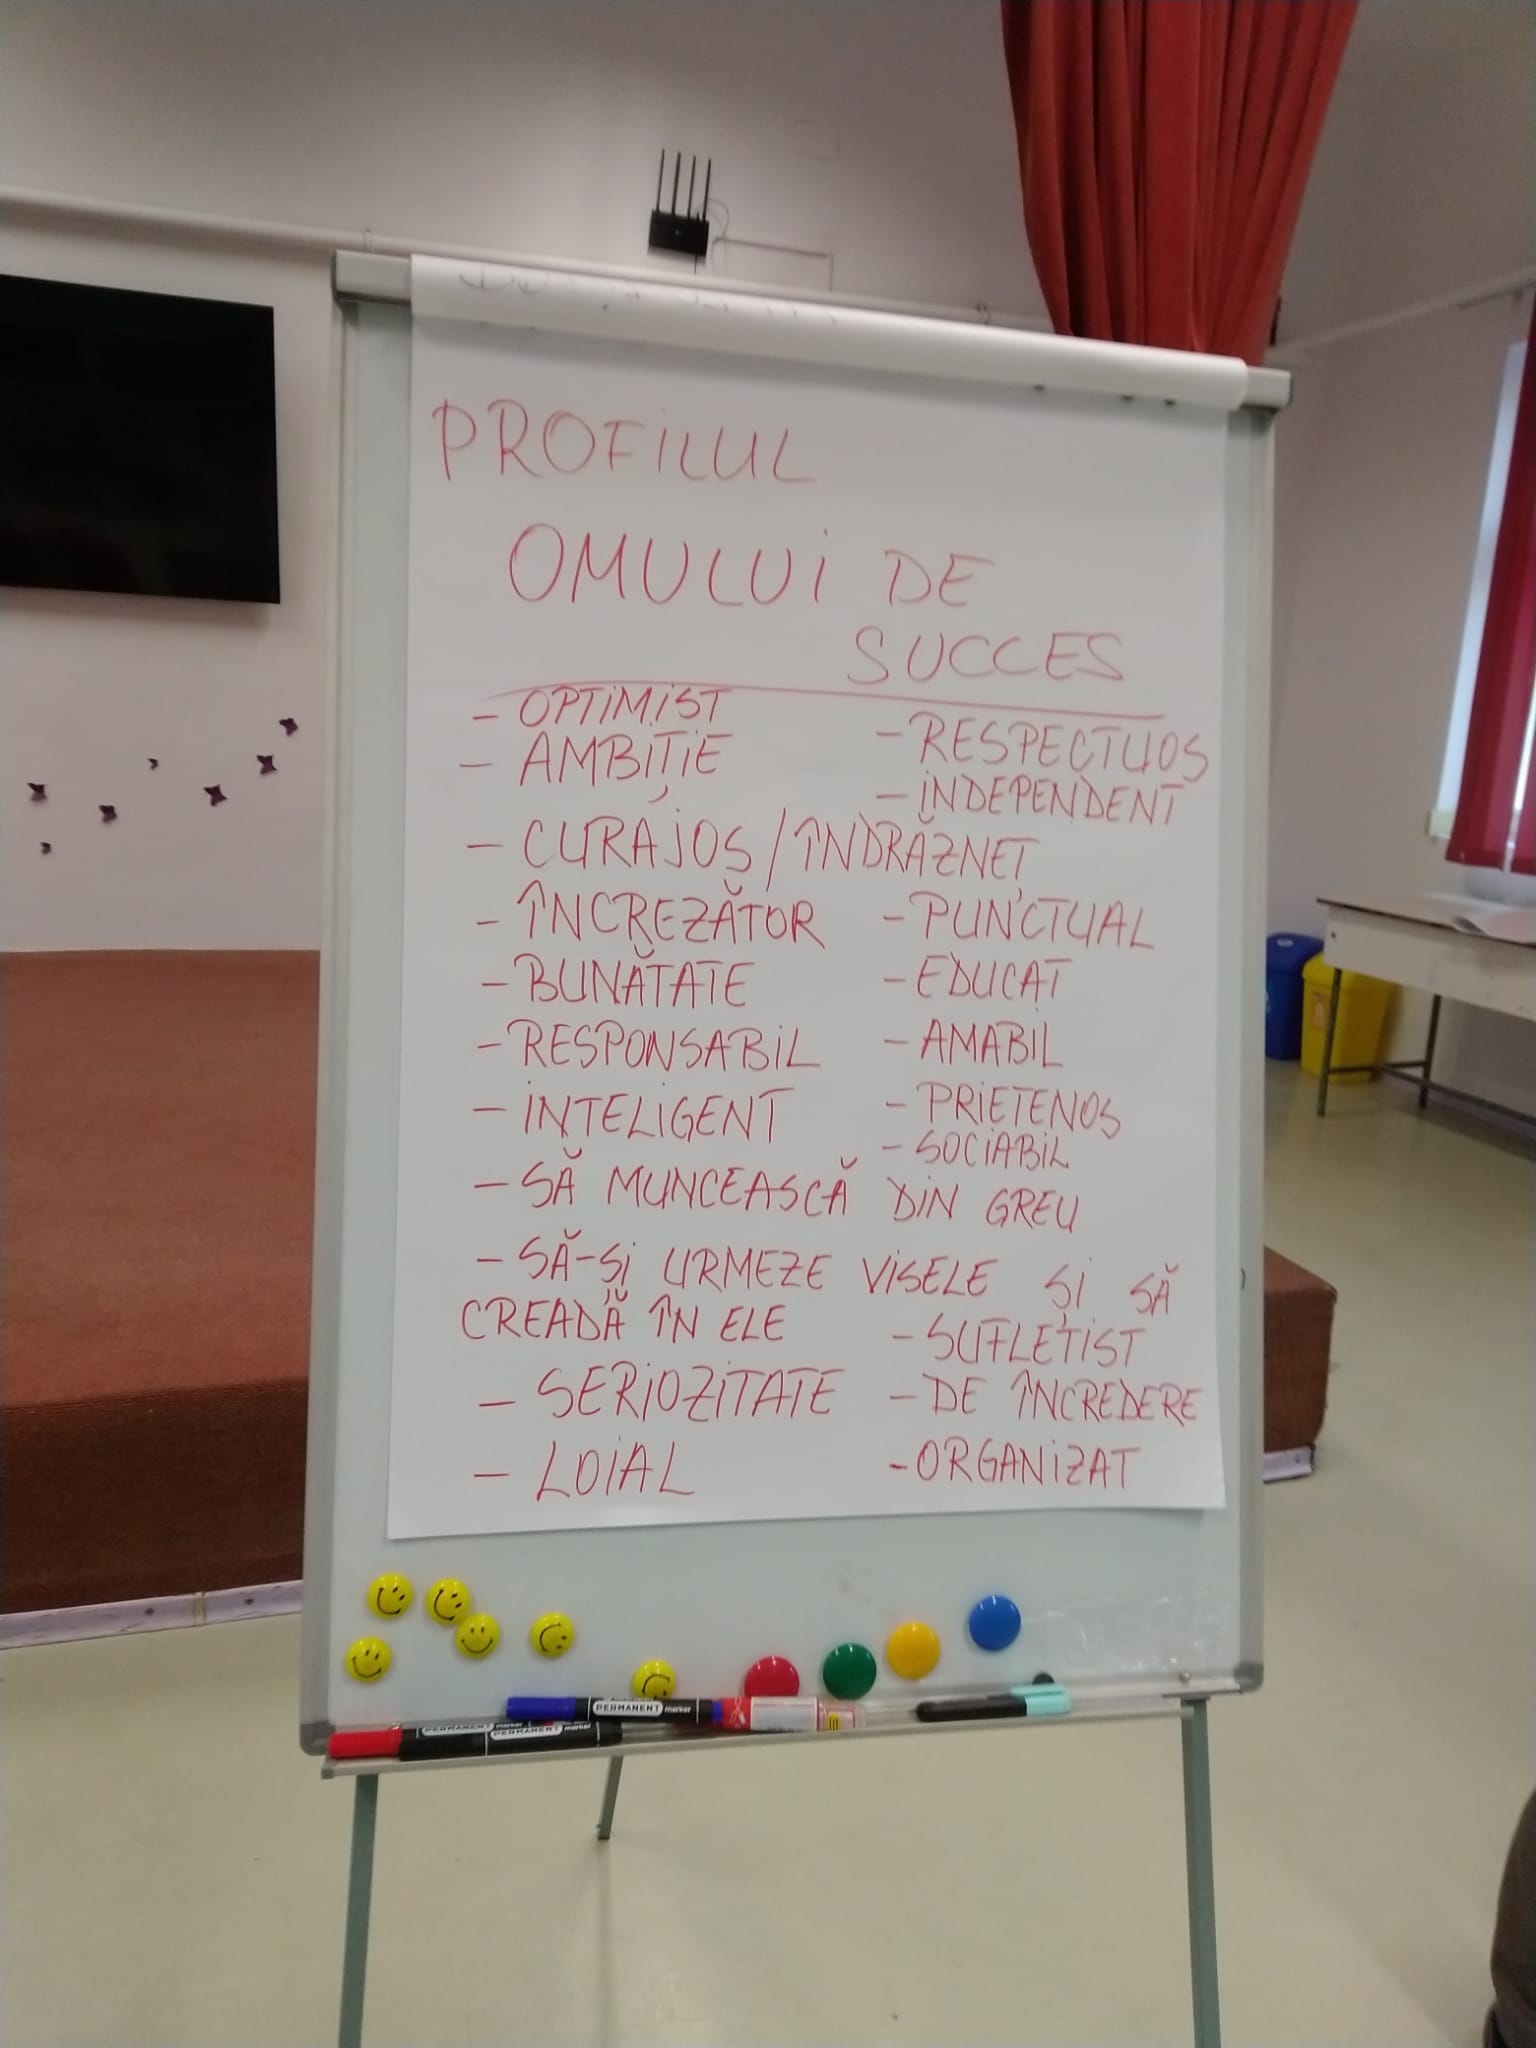 PROFILUL
OMULUI DE
SUCCES
- OPTIMIST
- AMBIȚIE
- RESPECTUOS
- INDEPENDENT
- CURAJOȘ / ÎNDRĂZNEȚ
- ÎNCREZĂTOR
- PUNCTUAL
- BUNĂTATE
- EDUCAT
- RESPONSABIL
- AMABIL
- INTELIGENT
- PRIETENOȘ
- SOCIABIL
- SĂ MUNCEASCĂ DIN GREU
- SĂ-ȘI URMEZE VISELE ȘI SĂ
CREADĂ ÎN ELE
- SUFLETIST
- SERIOZITATE
- DE ÎNCREDERE
- LOIAL
- ORGANIZAT
PERMANENT marker
PERMANENT marker
PERMANENT marker